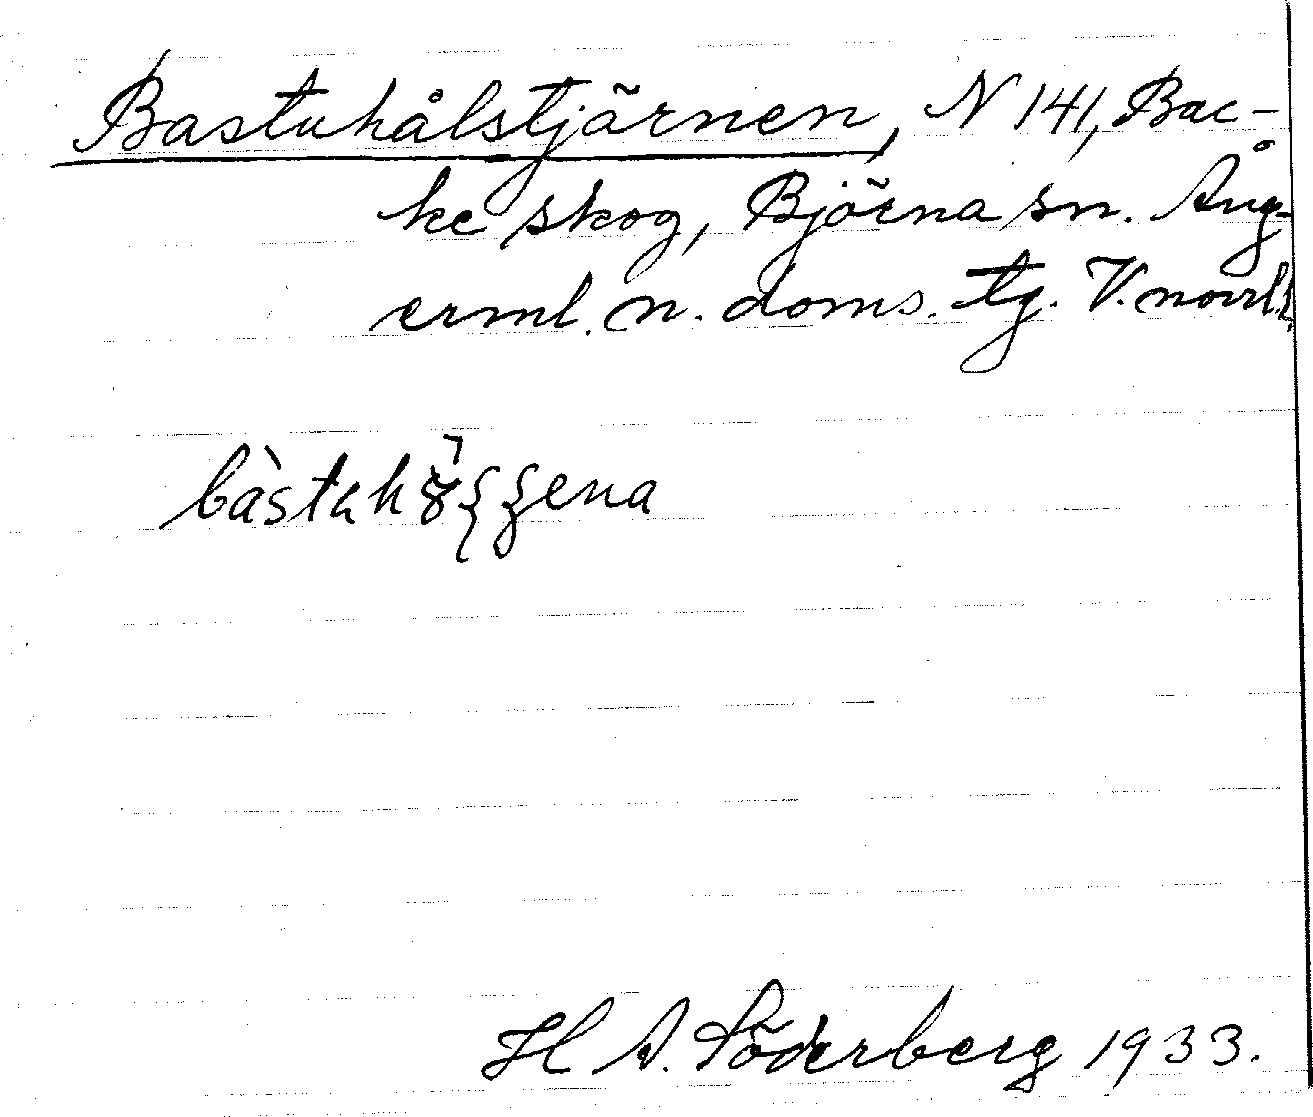 Bastuhålstjärnen, N 141, Bac-
ke skog, Björna sn. Ång-
erml. n. doms. tg. V. norrl.
H A. Söderberg 1933.